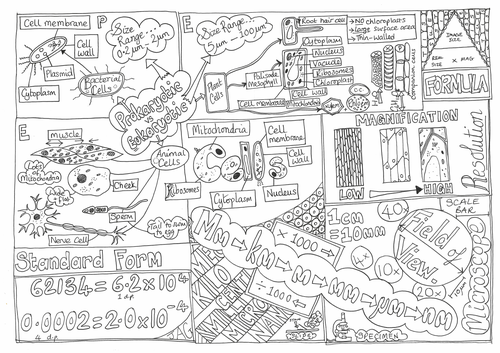 Cell membrane
P
Cell wall
Plasmid
Cytoplasm
Bacterial Cells
Size Range...
0.2μm - 2μm
E
Size Range...
5μm - 100μm
Prokaryotic
vs
Eukaryotic
Plant Cells
Palisade Mesophyll
Root hair cell
→ NO chloroplasts
→ Large surface area
→ Thin-Walled
Cytoplasm
Nucleus
Vacuole
Ribosomes
Chloroplast
Cell wall
Cell membrane
Mitochondria
Xylem
Phloem
Companion cells
IMAGE SIZE
REAL SIZE
x MAG
FORMULA
E
Muscle
Lots of Mitochondria
Cheek
Sperm
Nerve Cell
Tail to swim to egg
Animal Cells
Mitochondria
Cell membrane
Cell wall
Ribosomes
Cytoplasm
Nucleus
MAGNIFICATION
LOW
HIGH
Resolution
Standard Form
62134 = 6.2 x 10⁴
1 d.p.
0.0002 = 2.0 x 10⁻⁴
4 d.p.
x 1000
÷ 1000
Nm → km → m → mm → μm → nm
KILO
MICRO
1cm = 10mm
SCALE BAR
40x
Field of View.
4x
10x
20x
Microscope
SLIDE
SPECIMEN